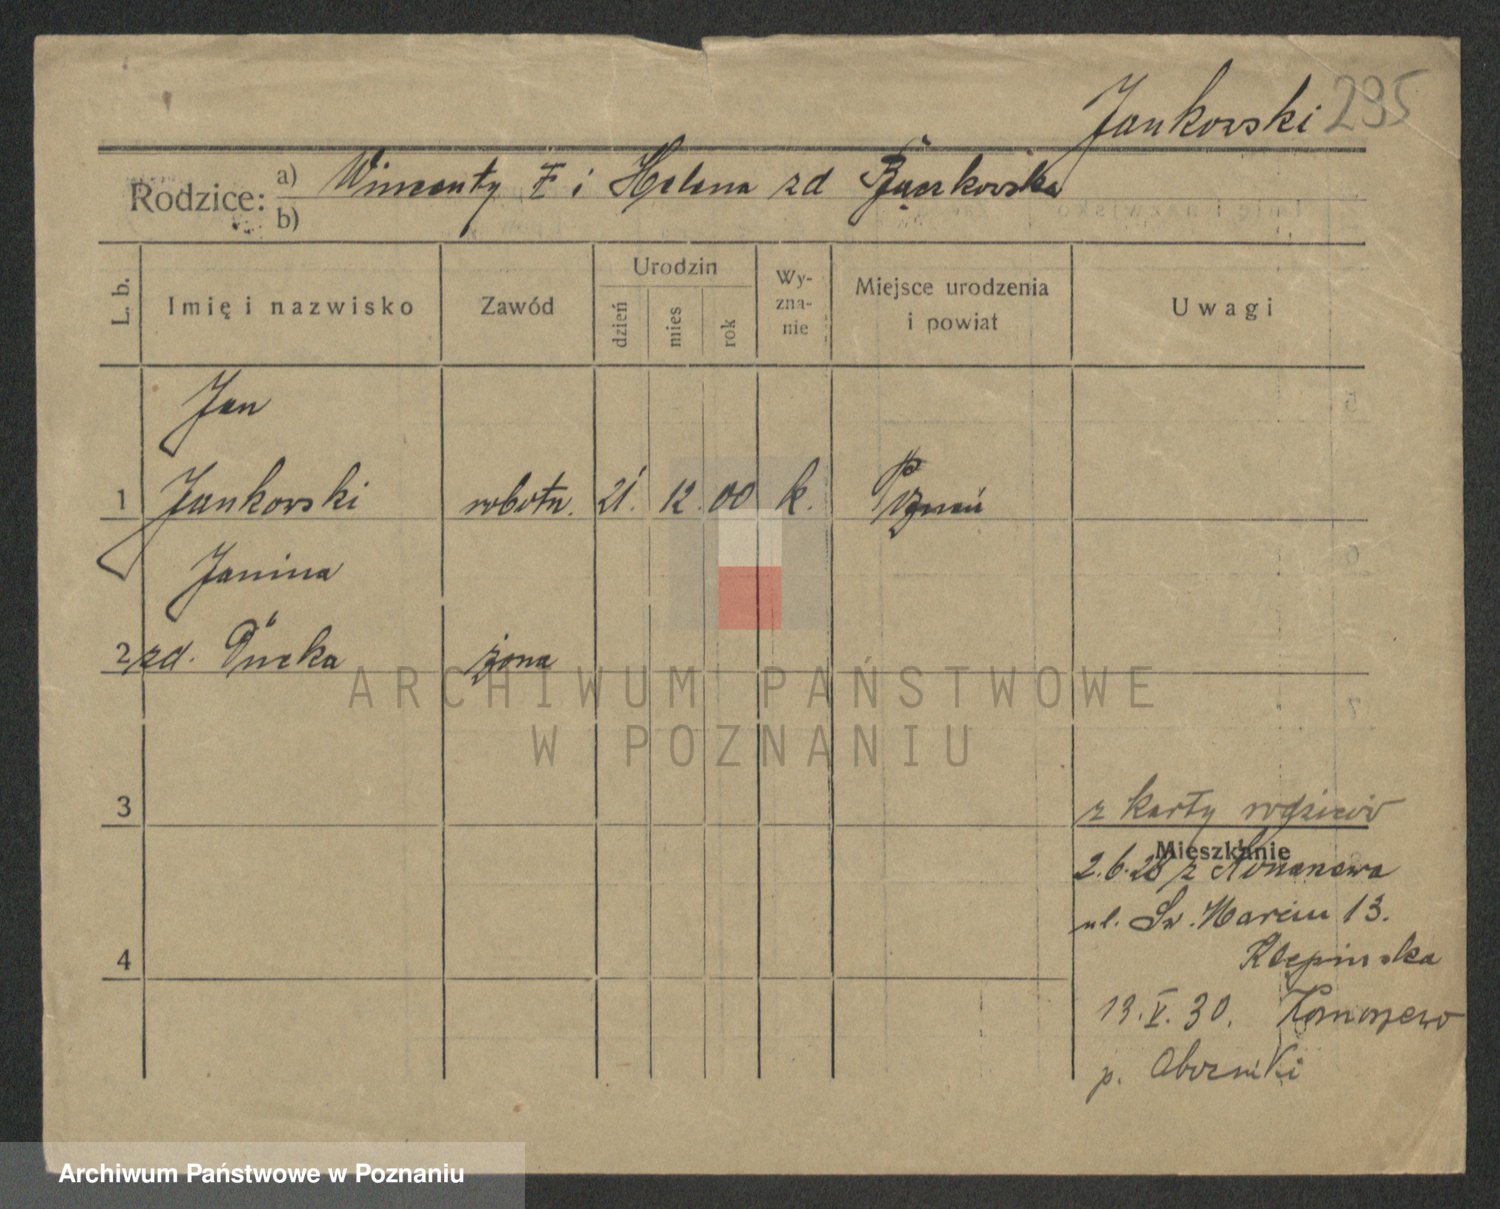 Jankowski 295
Rodzice: a) Wincenty † i Helena zd Bączkowska
b)
L. b. Imię i nazwisko Zawód Urodzin dzień mies rok Wyznanie Miejsce urodzenia i powiat Uwagi
Jan
1 Jankowski robotn. 21. 12 00 k. Poznań
Janina
2 zd. żona
3
z karty rodziców
Mieszkanie
2.6.28 z
ul. Św. Marcin 13.
4
13.V.30.
p. Oborniki
ARCHIWUM PAŃSTWOWE
W POZNANIU
Archiwum Państwowe w Poznaniu